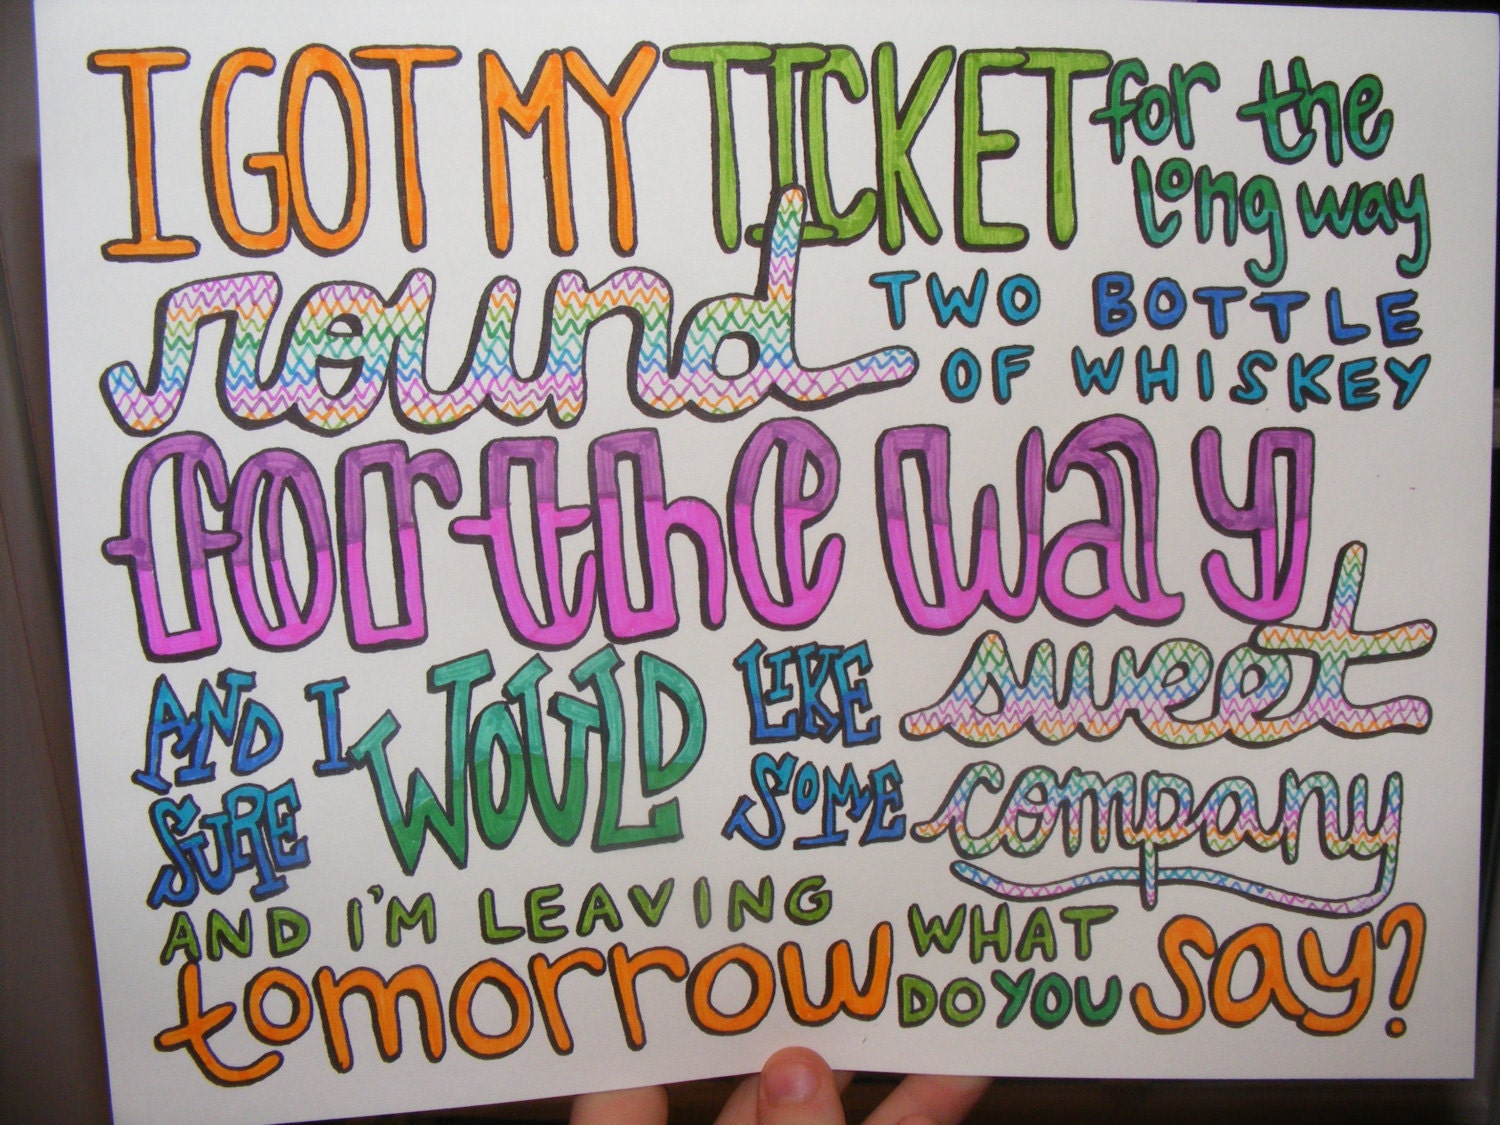 I GOT MY TICKET for the
long way
round TWO BOTTLE
OF WHISKEY
for the way
AND I WOULD LIKE sweet
SURE SOME company
AND I'M LEAVING
tomorrow WHAT
DO YOU say?